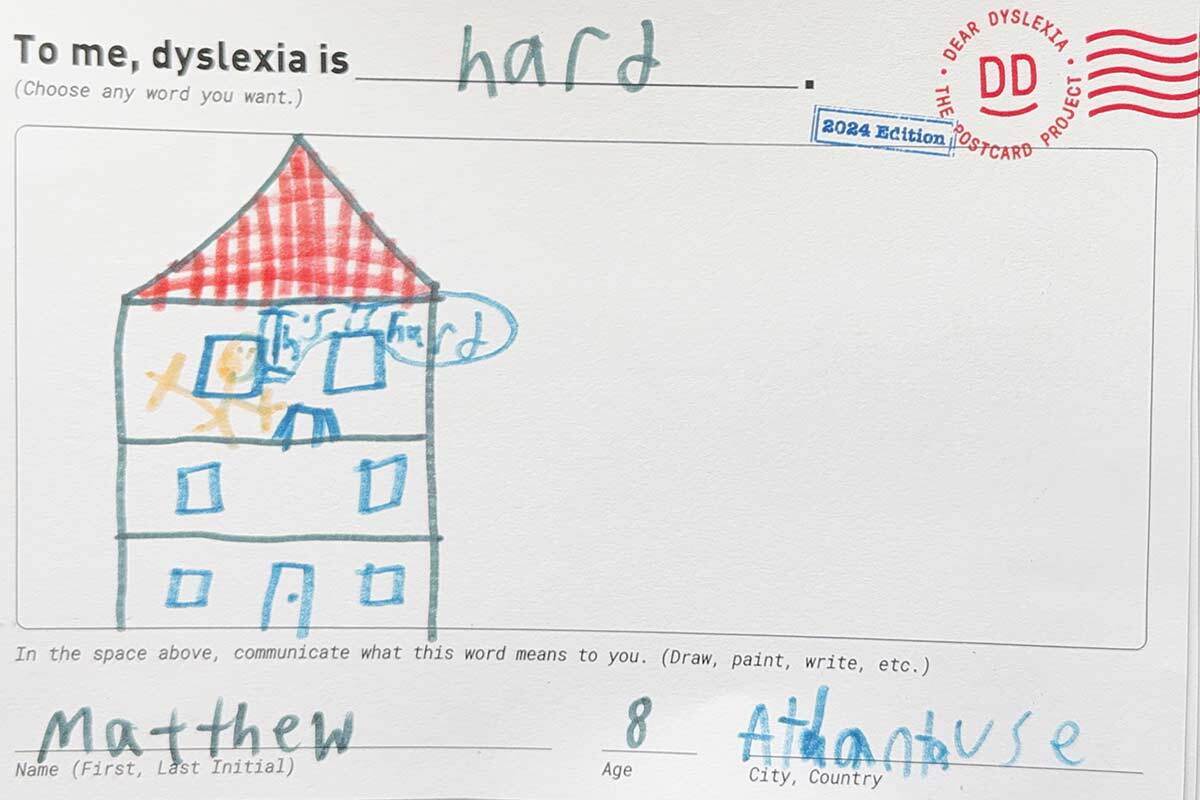 To me, dyslexia is hard.
(Choose any word you want.)
DEAR DYSLEXIA · THE POSTCARD PROJECT ·
DD
2024 Edition
This is hard
In the space above, communicate what this word means to you. (Draw, paint, write, etc.)
Matthew 8
Name (First, Last Initial) Age City, Country